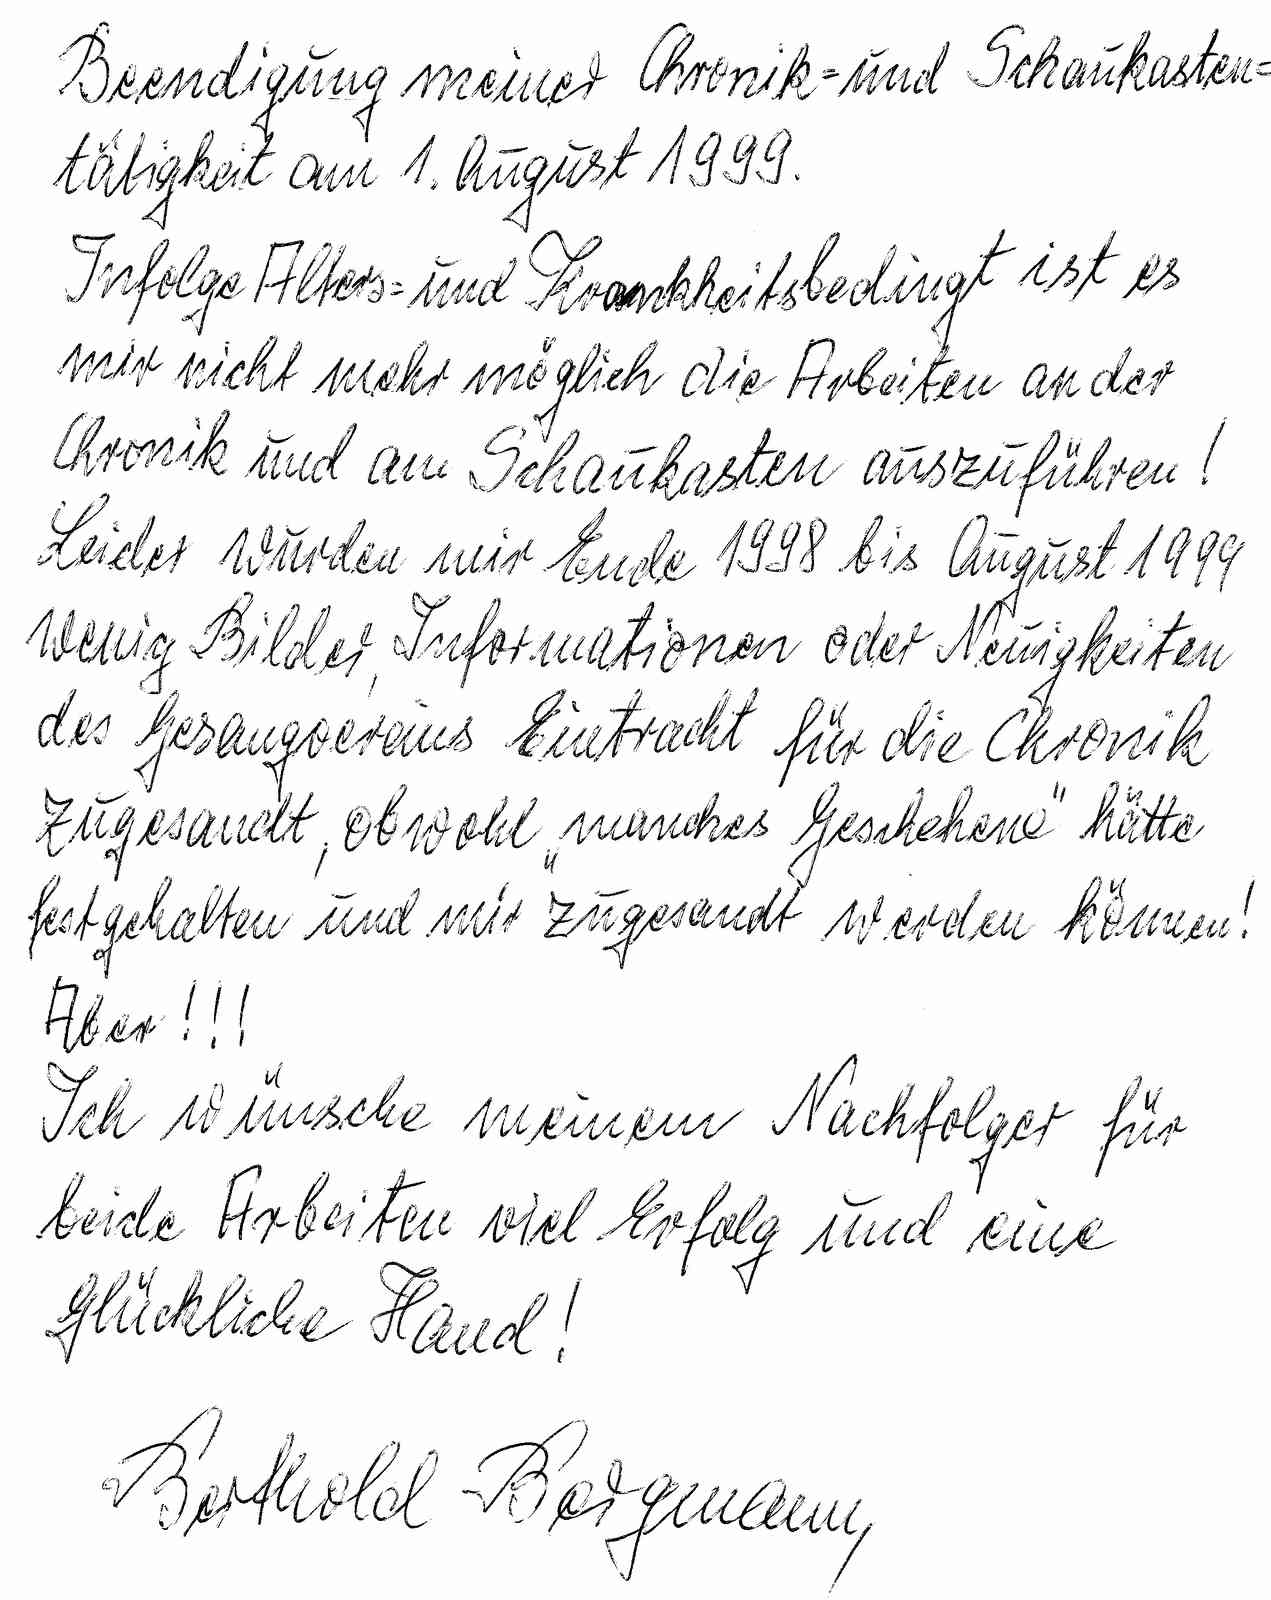 Beendigung meiner Chronik= und Schaukasten=
tätigkeit am 1. August 1999.
Infolge Alters= und Krankheitsbedingt ist es
mir nicht mehr möglich die Arbeiten an der
Chronik und am Schaukasten auszuführen!
Leider wurden mir Ende 1998 bis August 1999
wenig Bilder, Informationen oder Neuigkeiten
des Gesangvereins Eintracht für die Chronik
zugesandt, obwohl „manches Geschehene" hätte
festgehalten und mir zugesandt werden können!
Aber!!!
Ich wünsche meinem Nachfolger für
beide Arbeiten viel Erfolg und eine
glückliche Hand!
Berthold Bergmann,